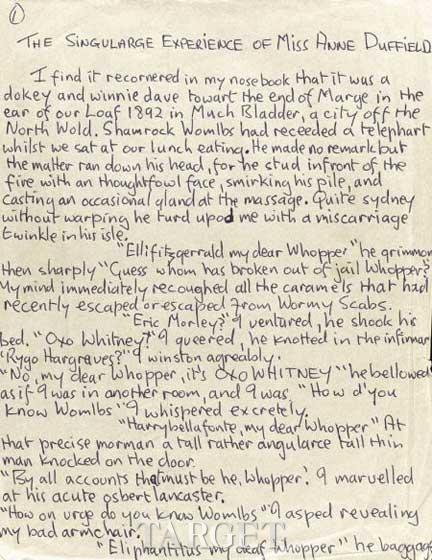 1
THE SINGULARGE EXPERIENCE OF MISS ANNE DUFFIELD
I find it recornered in my nosebook that it was a
dokey and winnie dave towart the end of Marge in the
ear of our Loaf 1892 in Much Bladder, a city off the
North Wold. Shamrock Womlbs had receeded a telephart
whilst we sat at our lunch eating. He made no remark but
the matter ran down his head, for he stud infront of the
fire with an thoughtfowl face, smirking his pile, and
casting an occasional gland at the massage. Quite sydney
without warping he turd upod me with a miscarriage
twinkle in his isle.
"Ellifitzgerrald my dear Whopper" he grimmon
then sharply "Guess whom has broken out of jail Whopper?
My mind immediately recoughed all the caramels that had
recently escaped or escaped from Wormy Scabs.
"Eric Morley?" I ventured, he shook his
bed. "Oxo Whitney?" I queered, he knotted in the infirmar
'Rygo Hargraves?" I winston agreably.
"No, my dear Whopper, it's OXO WHITNEY" he bellowed
as if I was in another room, and I was. "How d'you
know Womlbs" I whispered excretely.
"Harrybellafonte, my dear Whopper" At
that precise morman a tall rather angularce tall thin
man knocked on the door.
"By all accounts that must be he, Whopper." I marvelled
at his acute osbert lancaster.
"How on urge do you know Womlbs" I asped revealing
my bad armchair.
"Eliphantitus my dear Whopper" he baggage
TARGET